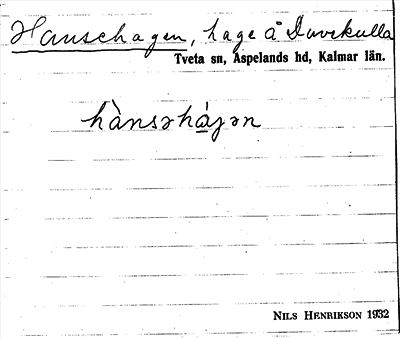 Hanschagen, hage å Duvekulla
Tveta sn, Aspelands hd, Kalmar län.
hànsəhá̱jən
NILS HENRIKSON 1932